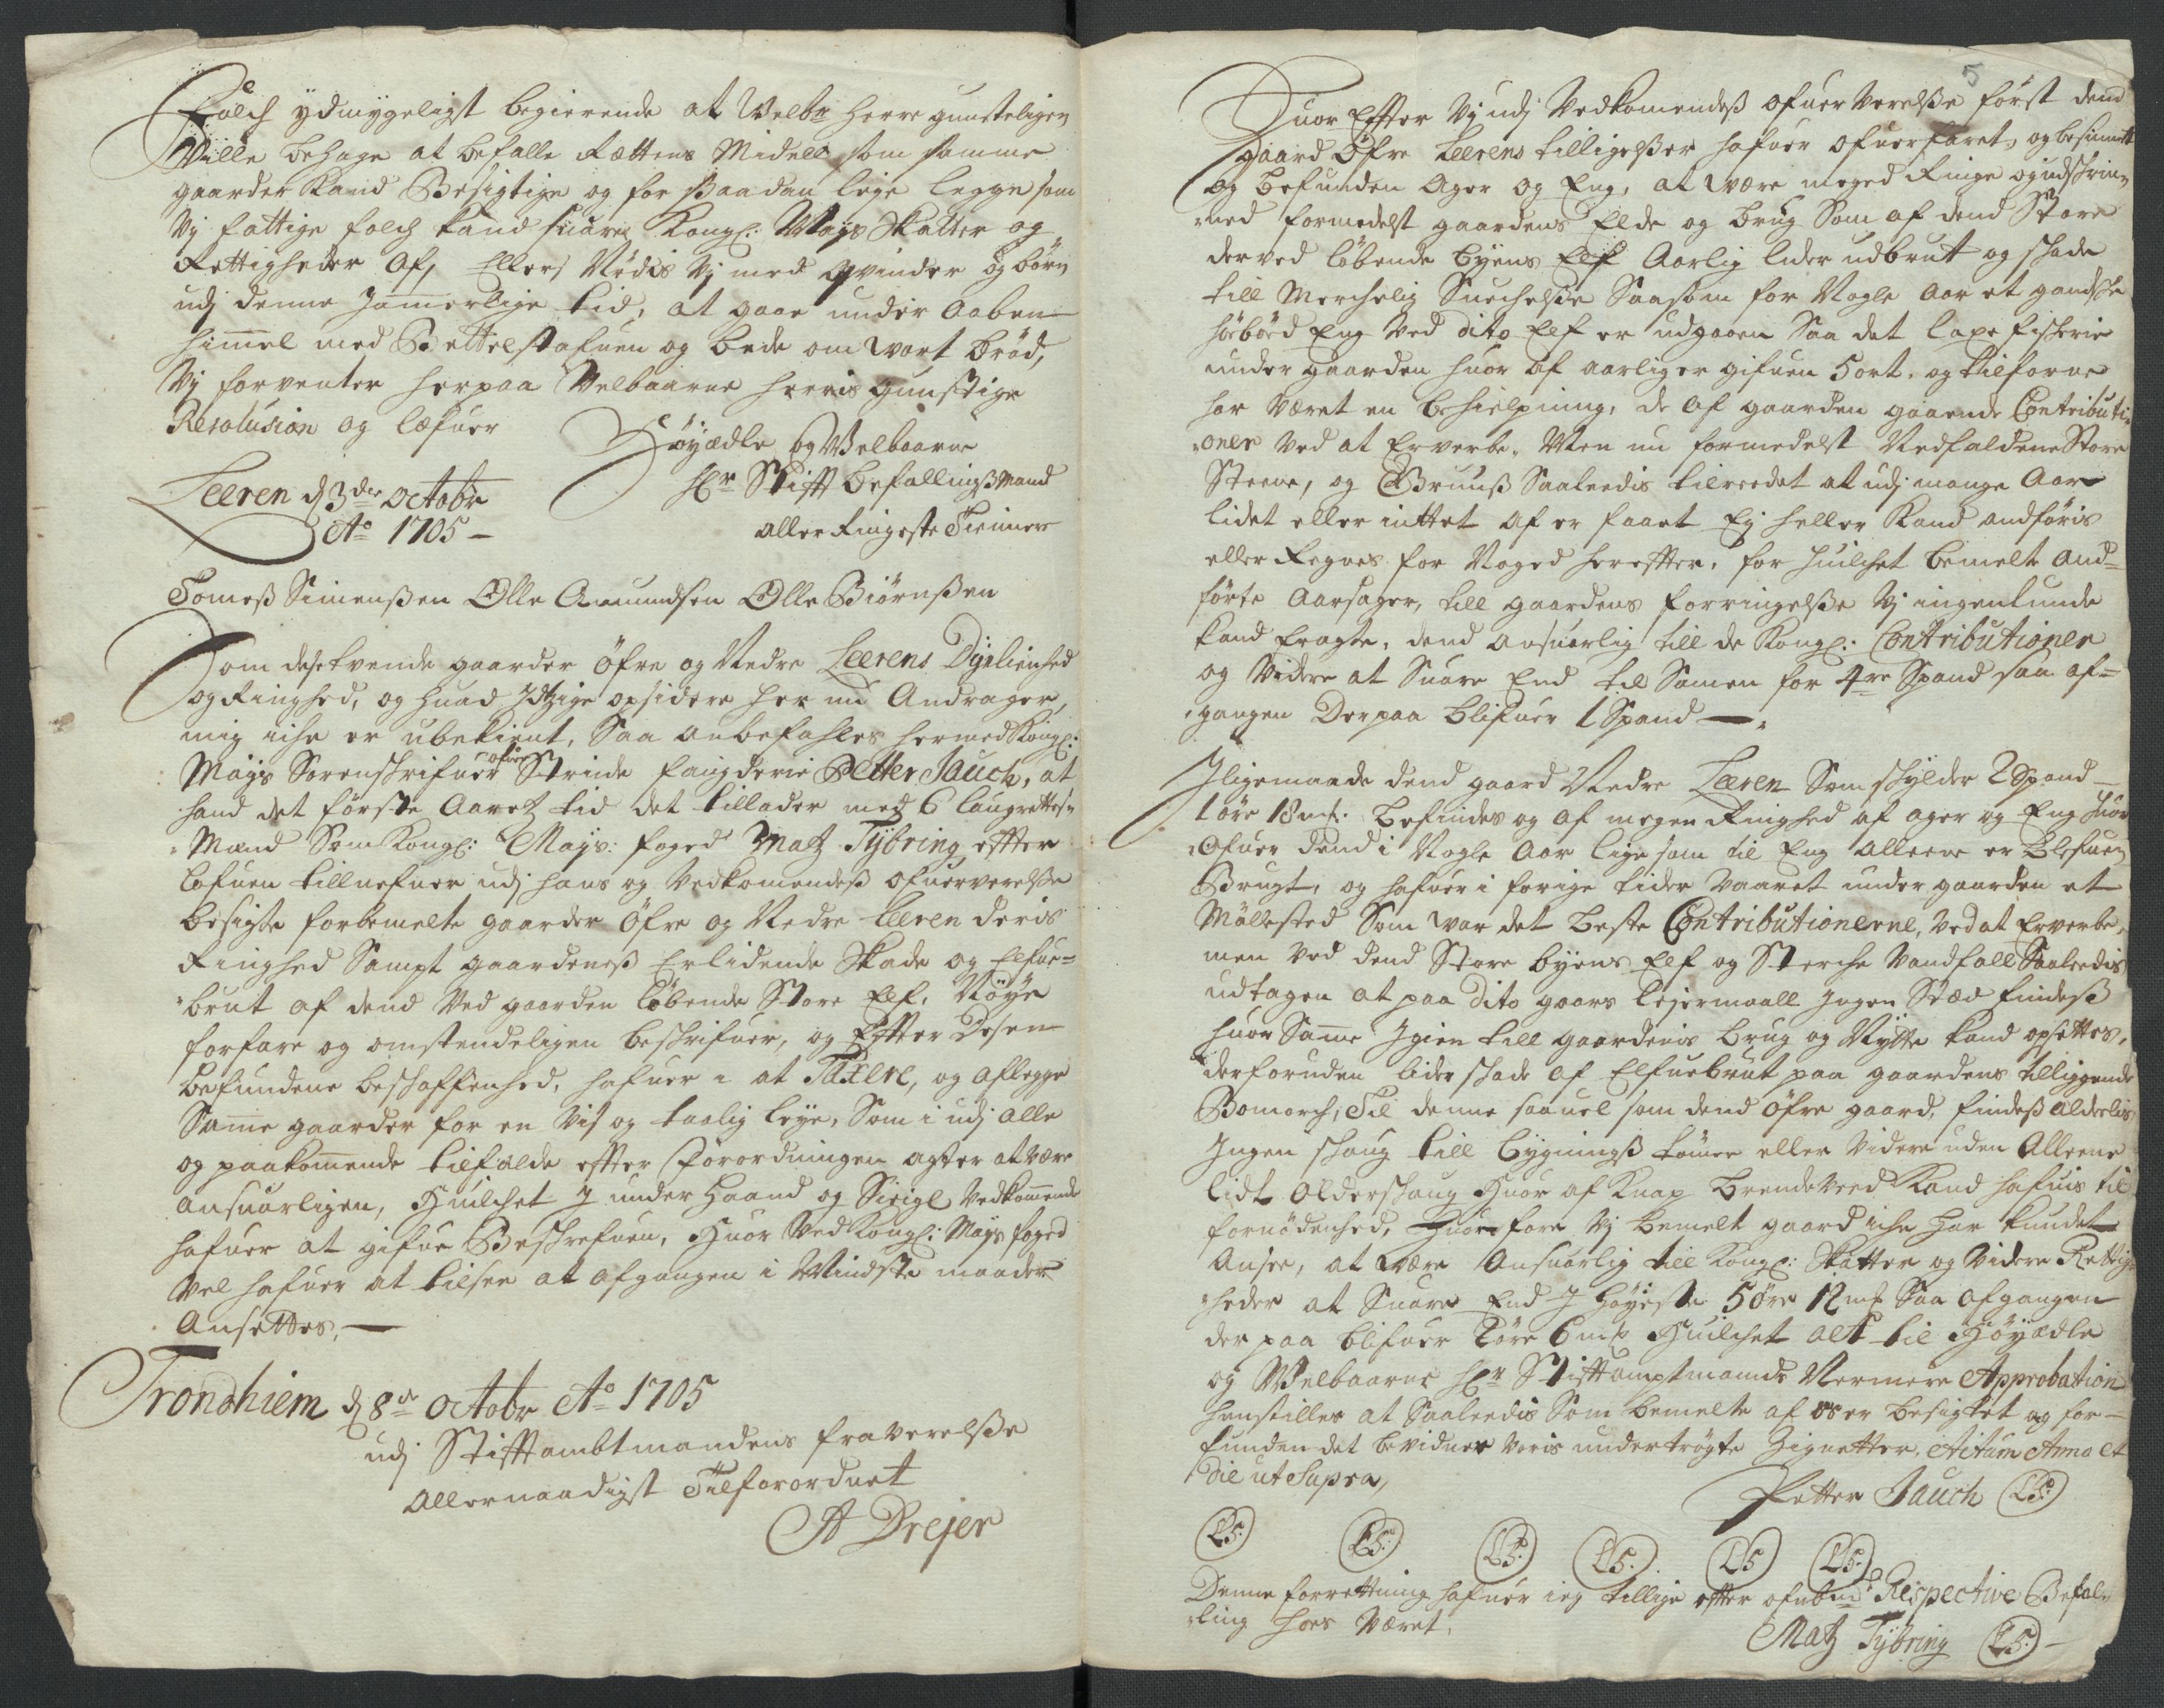 Folch ydmygeligst begierende at Welbr herre gunsteligen
Wille behage at befalle Rættens Midell som samme
gaarder Kand Besigtige og for ssaadan leje legge som
Vj fattige folch kand suare Kongl: Mays Skatter og
Rettigheder Af, Ellers Nödis Vj med Qvinder og börn
udj denne Jamerlige tid, at gaae under Aaben
himmel med Bettelstafuen og bede om wort bröd,
Vj forventer herpaa Velbaarne herris gunstige
Resolusion og lefuer
Höyædle og Welbaarne
Hr Stifft befallingsmand
allerRingeste Tienner
Leeren d 3de Octobr
Ao 1705 –
Tomess Simenssen Olle Amundsen Olle Biörnssen
Som dese tvende gaarder Öfre og Nedre Leerens Dyrlienhed
og Ringhed, og huad Jdtzige opsidere her nu Andrager,
mig iche er ubekient, Saa anbefahles hermed Kongl:
Mays Sorenschrifuer ofuer Strinde faugderie Petter Jauch, at
hand det förste Aaretz tid det tillader med 6 laugrettes-
Mænd Som Kongl: Mays: foged Matz Tybring effter
lofuen tillnefner udj hans og Vedkomendess ofuerverelsse
besigte forbemelte gaarder Öfre og Nedre Leeren deris
Ringhed Sampt gaardeness Erlidende Skade og Elfue-
brut af dend Ved gaarden Löbende Store Elf. Nöye
forfare og omstendeligen beschrifuer, og Effter Desen
befundene beschaffenhed, hafuer i at Taxere, og aflegge
Samme gaarder for en vis og taalig leye, Som i udj alle
og paakommende tilfælde effter Forordningen agter at være
ansuarligen, Huilchet J under Haand og Sieigl Vedkommende
hafuer at gifue Beschrefuen, Huor Ved Kongl: Mays foged
vel hafuer at tilsee at afgangen i Mindste maader
Ansettes, —
Trondhiem d 8de Octobr Ao 1705
udj Stifftambtmandens fraverelsse
Allernaadigst Tilforordnet
A Drejer
5
Huor Effter Vj udj Vedkomendess ofuerverelsse först dend
gaard Öfre Leerens tilligelsser hafuer ofuerfaret, og besinnett
og befunden Ager og Eng, at være meged Ringe og indschrin-
ned formedelst gaardens Elde og brug Som af dend Store
derved löbende byens Elf Aarlig lider udbrut og schade
till Merchelig Suechelsse Saasom for Nogle Aar et gandsche
Eng Ved dito Elf er udgaaen Saa det laxe fischerie
under gaarden huor af aarlig er gifuen 5 ort. og tilforne
har Været en behielpning, de af gaarden gaaende Contributi-
oner Ved at Erverbe, Men nu formedelst Nedfaldene Store
Steene, og Gruuss Saaleedis tilreedet at udj mange Aar
lidet eller inttet af er faaet Ej heller Kand andföris
eller Regnes for Noged hereffter, for huilchet bemelte and-
förte Aarsager, till gaardens forringelsse Vj ingenlunde
kand Eragte, dend ansuarlig till de Kongl: Contributioner
og Videre at Suare End til Samen for 4re Spand saa af-
gangen Derpaa blifuer 1 Spand —.
Jligemaade dend gaard Nedre Leeren Som schylder 2 Spand
1 öre 18 mk: befindes og af megen Ringhed af ager og Eng huor
Ofuer dend i Nogle Aar lige som til Eng alleene er blefuen
Brugt, og hafuer i forige tider Vaaret under gaarden et
Möllested Som war det beste Contributionerne, Ved at Erverbe,
men Ved dend Store byens Elf og Sterche Vandfall Saaleedis
udtagen at paa dito gaars Eyermaall Jngen Stæd findess
huor Samme Jgien till gaardenis brug og Nytte kand opsettes,
derforuden lider schade af Elfuebrut paa gaardens tilliggende
Bomarch, Til denne saauel som dend öfre gaard, findess alderlis
Jngen schoug till bygningss tömer eller Videre uden Alleene
lidt Olderschoug Huor af Knap brendeveed Kand hafuis til
fornödenhed, Huorfore Vj bemelt gaard iche har kundet
Ansee, at være Ansuarlig till Kongl: Skatter og Videre Rettig-
heder at Suare End J Höyeste 5 öre 12 mk Saa afgangen
der paa blifuer 2 öre 6 mk Huilchet alt til Höyædle
og Welbaarne Hr Stifftamptmands Nermere Approbation
henstilles at Saaleedis Som bemelte af os er besigtet og for-
funden det bevidner Voris undertrögte Zignetter, Actum Anno et
die ut Supra,
Petter Jauch (LS:)
(LS:) (LS:) (LS:) (LS:) (LS) (LS:)
Denne forrettning hafuer ieg tillige effter ofuenbem. Respective Befal-
ling hoes Været.
Matz Tybring (LS:) –